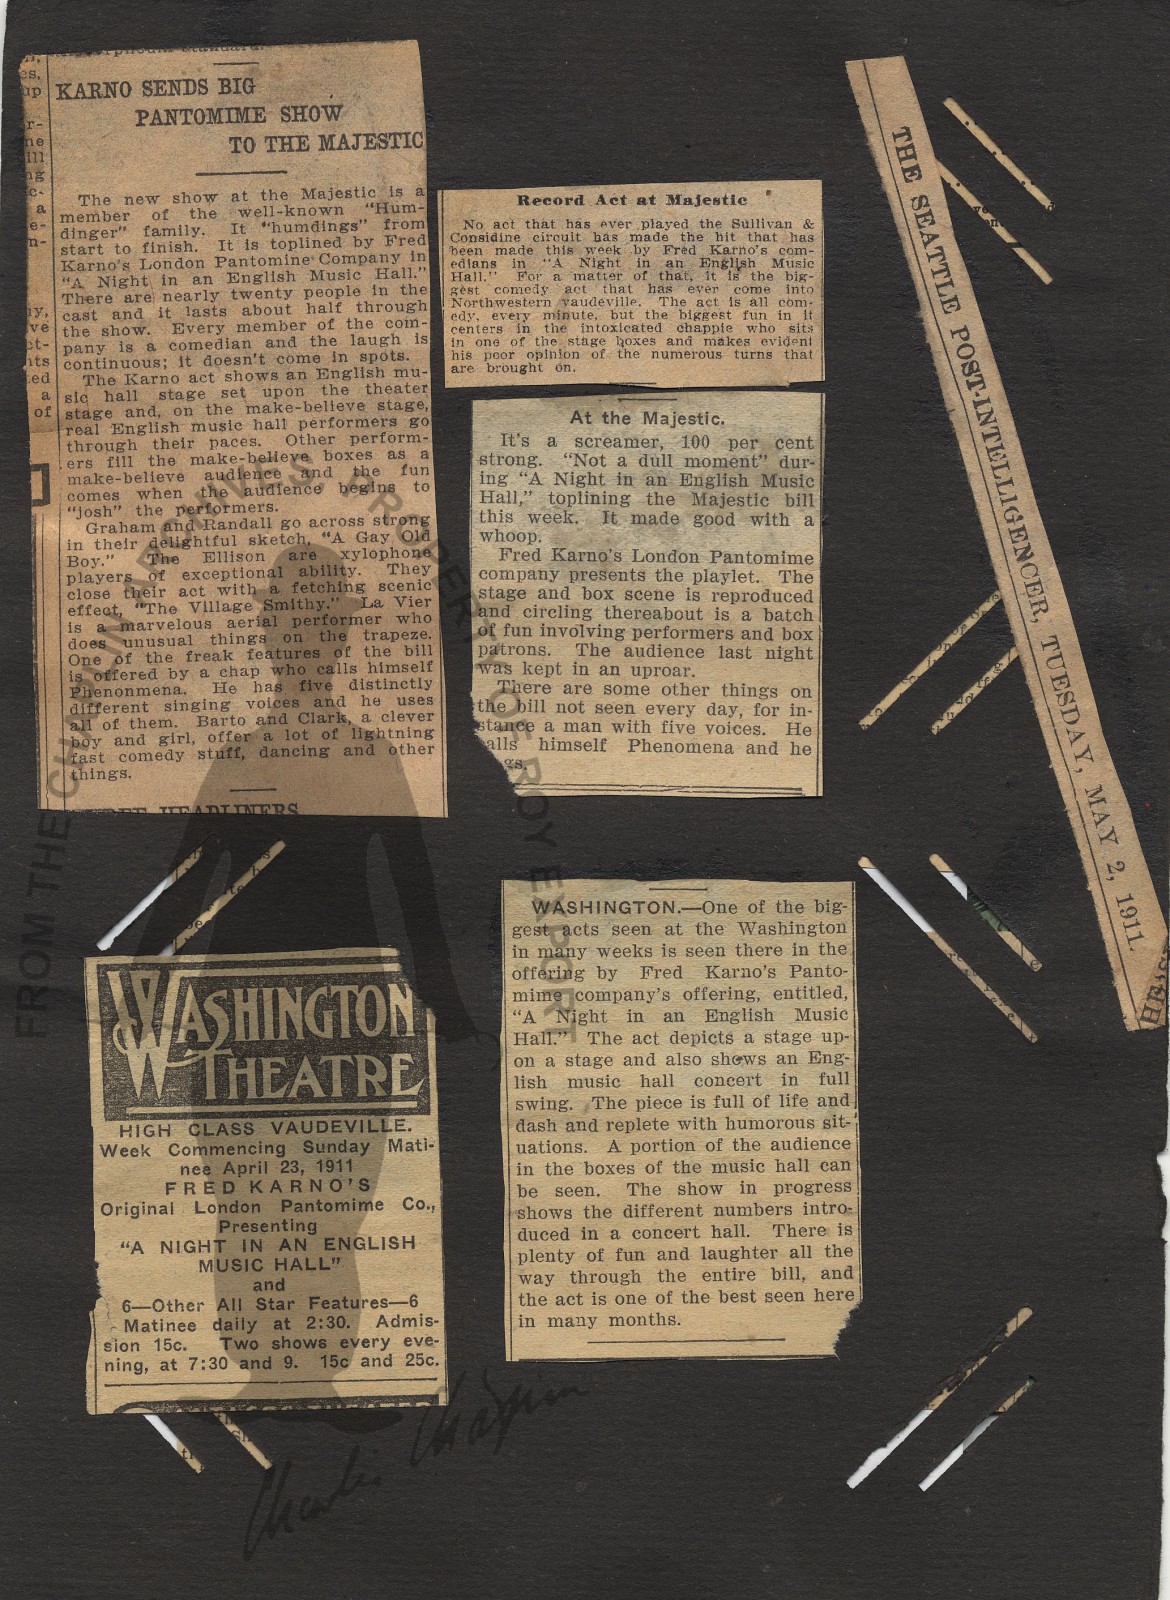 KARNO SENDS BIG
PANTOMIME SHOW
TO THE MAJESTIC
The new show at the Majestic is a
member of the well-known "Hum-
dinger" family. It "humdings" from
start to finish. It is toplined by Fred
Karno's London Pantomine Company in
"A Night in an English Music Hall."
There are nearly twenty people in the
cast and it lasts about half through
the show. Every member of the com-
pany is a comedian and the laugh is
continuous; it doesn't come in spots.
The Karno act shows an English mu-
sic hall stage set upon the theater
stage and, on the make-believe stage,
real English music hall performers go
through their paces. Other perform-
ers fill the make-believe boxes as a
make-believe audience and the fun
comes when the audience begins to
"josh" the performers.
Graham and Randall go across strong
in their delightful sketch, "A Gay Old
Boy." The Ellison are xylophone
players of exceptional ability. They
close their act with a fetching scenic
effect, "The Village Smithy." La Vier
is a marvelous aerial performer who
does unusual things on the trapeze.
One of the freak features of the bill
is offered by a chap who calls himself
Phenonmena. He has five distinctly
different singing voices and he uses
all of them. Barto and Clark, a clever
boy and girl, offer a lot of lightning
fast comedy stuff, dancing and other
things.
HEADLINERS
Record Act at Majestic
No act that has ever played the Sullivan &
Considine circuit has made the hit that has
been made this week by Fred Karno's com-
edians in "A Night in an English Music
Hall." For a matter of that, it is the big-
gest comedy act that has ever come into
Northwestern vaudeville. The act is all com-
edy, every minute, but the biggest fun in it
centers in the intoxicated chappie who sits
in one of the stage boxes and makes evident
his poor opinion of the numerous turns that
are brought on.
At the Majestic.
It's a screamer, 100 per cent
strong. "Not a dull moment" dur-
ing "A Night in an English Music
Hall," toplining the Majestic bill
this week. It made good with a
whoop.
Fred Karno's London Pantomime
company presents the playlet. The
stage and box scene is reproduced
and circling thereabout is a batch
of fun involving performers and box
patrons. The audience last night
was kept in an uproar.
There are some other things on
the bill not seen every day, for in-
stance a man with five voices. He
alls himself Phenomena and he
gs.
THE SEATTLE POST-INTELLIGENCER, TUESDAY, MAY 2, 1911.
WASHINGTON THEATRE
HIGH CLASS VAUDEVILLE.
Week Commencing Sunday Mati-
nee April 23, 1911
FRED KARNO'S
Original London Pantomime Co.,
Presenting
"A NIGHT IN AN ENGLISH
MUSIC HALL"
and
6—Other All Star Features—6
Matinee daily at 2:30. Admis-
sion 15c. Two shows every eve-
ning, at 7:30 and 9. 15c and 25c.
WASHINGTON.—One of the big-
gest acts seen at the Washington
in many weeks is seen there in the
offering by Fred Karno's Panto-
mime company's offering, entitled,
"A Night in an English Music
Hall." The act depicts a stage up-
on a stage and also shows an Eng-
lish music hall concert in full
swing. The piece is full of life and
dash and replete with humorous sit-
uations. A portion of the audience
in the boxes of the music hall can
be seen. The show in progress
shows the different numbers intro-
duced in a concert hall. There is
plenty of fun and laughter all the
way through the entire bill, and
the act is one of the best seen here
in many months.
FROM THE CHAPLIN ARCHIVES PROPERTY OF ROY EXPORT
Charlie Chaplin